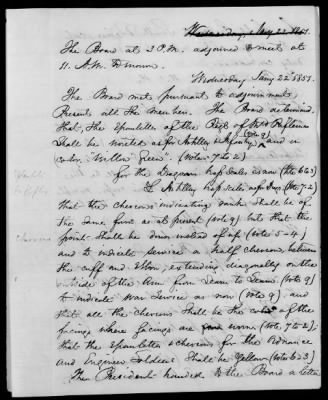 Wednesday, Jany 22. 1851.
The Board at 3 P.M. adjourned to meet at
11. A.M. Tomorrow.
Wednesday Jany 22d 1851.
The Board met pursuant to adjournment,
Present all the members. The Board determined
that, the Epaulettes of the Regt of Mtd Riflemen
Shall be worsted as for Artillery & Infantry (vote 9) and in
color "Willow Green". (Votes 7 to 2)
for the Dragoons brass scales as now (vote 6 to 3)
Lt Artillery brass scales as for Drag. (vote 7-2)
that the chevrons indicating rank shall be of
the same form as at present (vote 9) but that the
point shall be down instead of up (vote 5-4)
chevrons
and to indicate service a half chevron between
the cuff and elbow, extending diagonally on the
outside of the Arm from Seam to Seam (vote 9)
to indicate War Service as now (vote 9). and
that all the chevrons shall be the color of the
facings where facings are worn (vote, 7 to 2);
that the epaulettes & chevrons for the Ordnance
and Engineer Soldiers shall be Yellow (vote 6 to 3)
The President handed to the Board a letter